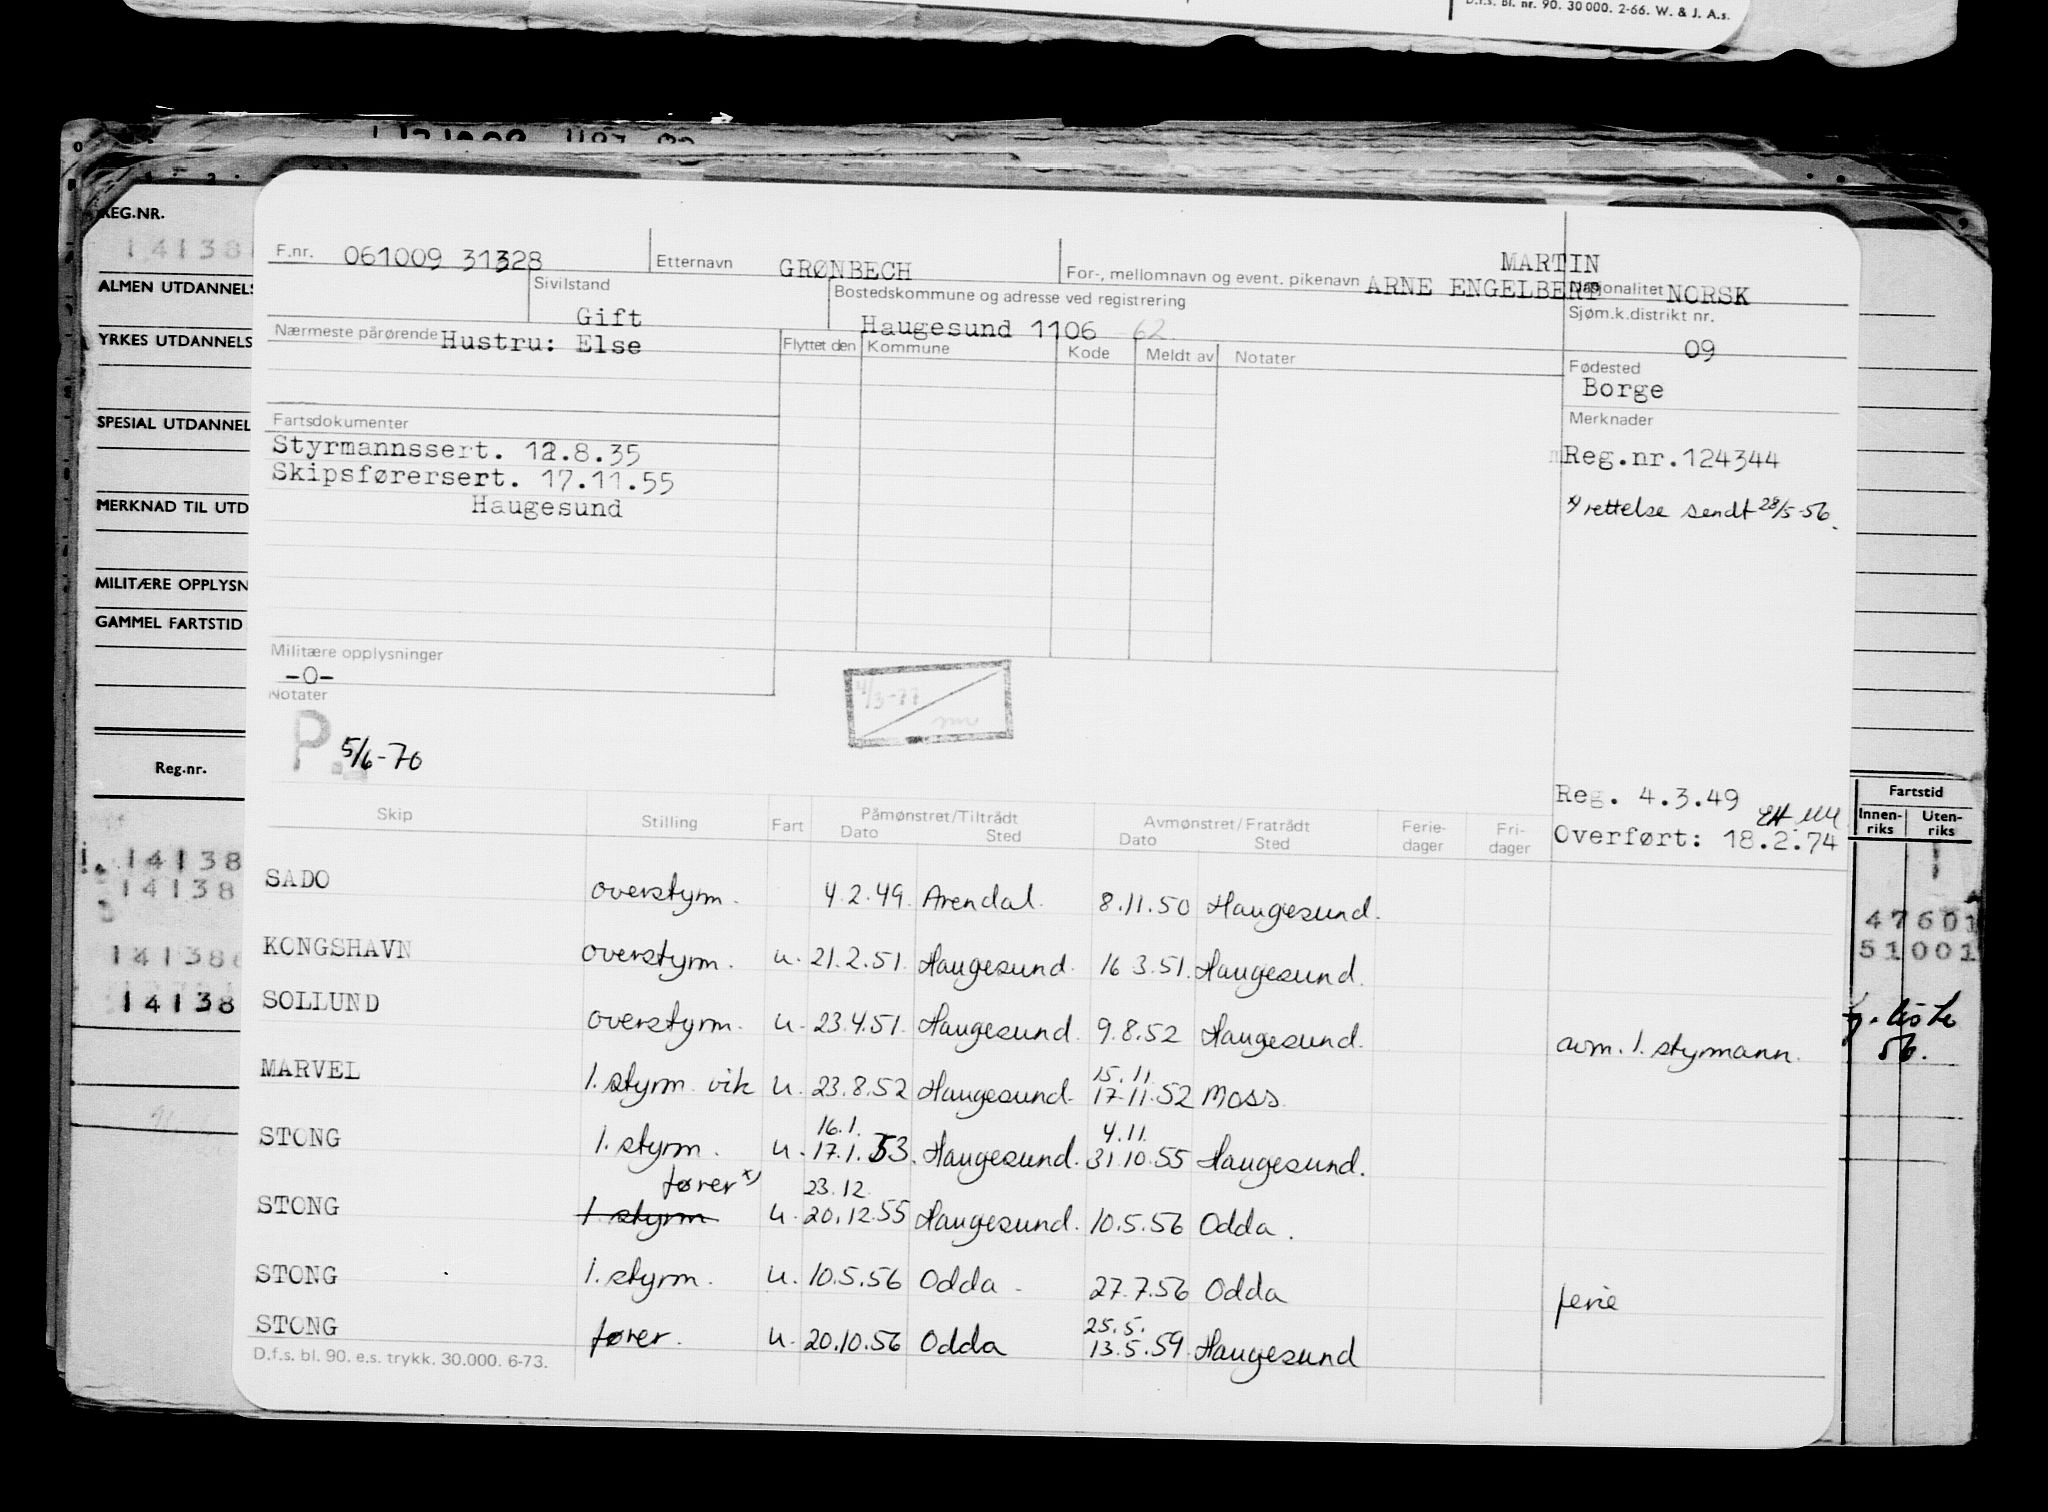 D.f.s. Bl. nr. 90. 30 000. 2-66. W. & J. A.s.
REG.NR.
14138
ALMEN UTDANNELS
YRKES UTDANNELS
SPESIAL UTDANNEL
MERKNAD TIL UTD
MILITÆRE OPPLYSN
GAMMEL FARTSTID
Reg.nr.
14138
14138
14138
14138
F.nr. 061009 31328
Etternavn GRØNBECH
For-, mellomnavn og event. pikenavn ARNE ENGELBERT MARTIN
Nasjonalitet NORSK
Sivilstand
Gift
Bostedskommune og adresse ved registrering
Haugesund 1106 -62.
Sjøm.k.distrikt nr.
09
Nærmeste pårørende Hustru: Else
Flyttet den Kommune Kode Meldt av Notater
Fødested
Borge
Fartsdokumenter
Styrmannssert. 12.8.35
Skipsførersert. 17.11.55
Haugesund
Merknader
Reg.nr.124344
x) rettelse sendt 28/5-56.
Militære opplysninger
-0-
Notater
P. 5/6-70
4/3-77
Reg. 4.3.49
Overført: 18.2.74
Skip Stilling Fart Påmønstret/Tiltrådt Dato Sted Avmønstret/Fratrådt Dato Sted Ferie-dager Fri-dager
SADO overstyrm. 4.2.49. Arendal. 8.11.50 Haugesund.
KONGSHAVN overstyrm. u. 21.2.51. Haugesund. 16.3.51. Haugesund.
SOLLUND overstyrm. u. 23.4.51. Haugesund. 9.8.52 Haugesund. avm. 1. styrmann.
15.11.
MARVEL 1. styrm. vik u. 23.8.52 Haugesund. 17.11.52 Moss.
16.1. 4.11.
STONG 1. styrm. u. 17.1.53. Haugesund. 31.10.55 Haugesund.
fører x) 23.12.
STONG 1. styrm u. 20.12.55 Haugesund. 10.5.56 Odda.
STONG 1. styrm. u. 10.5.56 Odda. 27.7.56 Odda ferie
25.5.
STONG fører. u. 20.10.56 Odda 13.5.59. Haugesund
D.f.s. bl. 90. e.s. trykk. 30.000. 6-73.
Fartstid
Innen-riks Uten-riks
47601
51001
56.